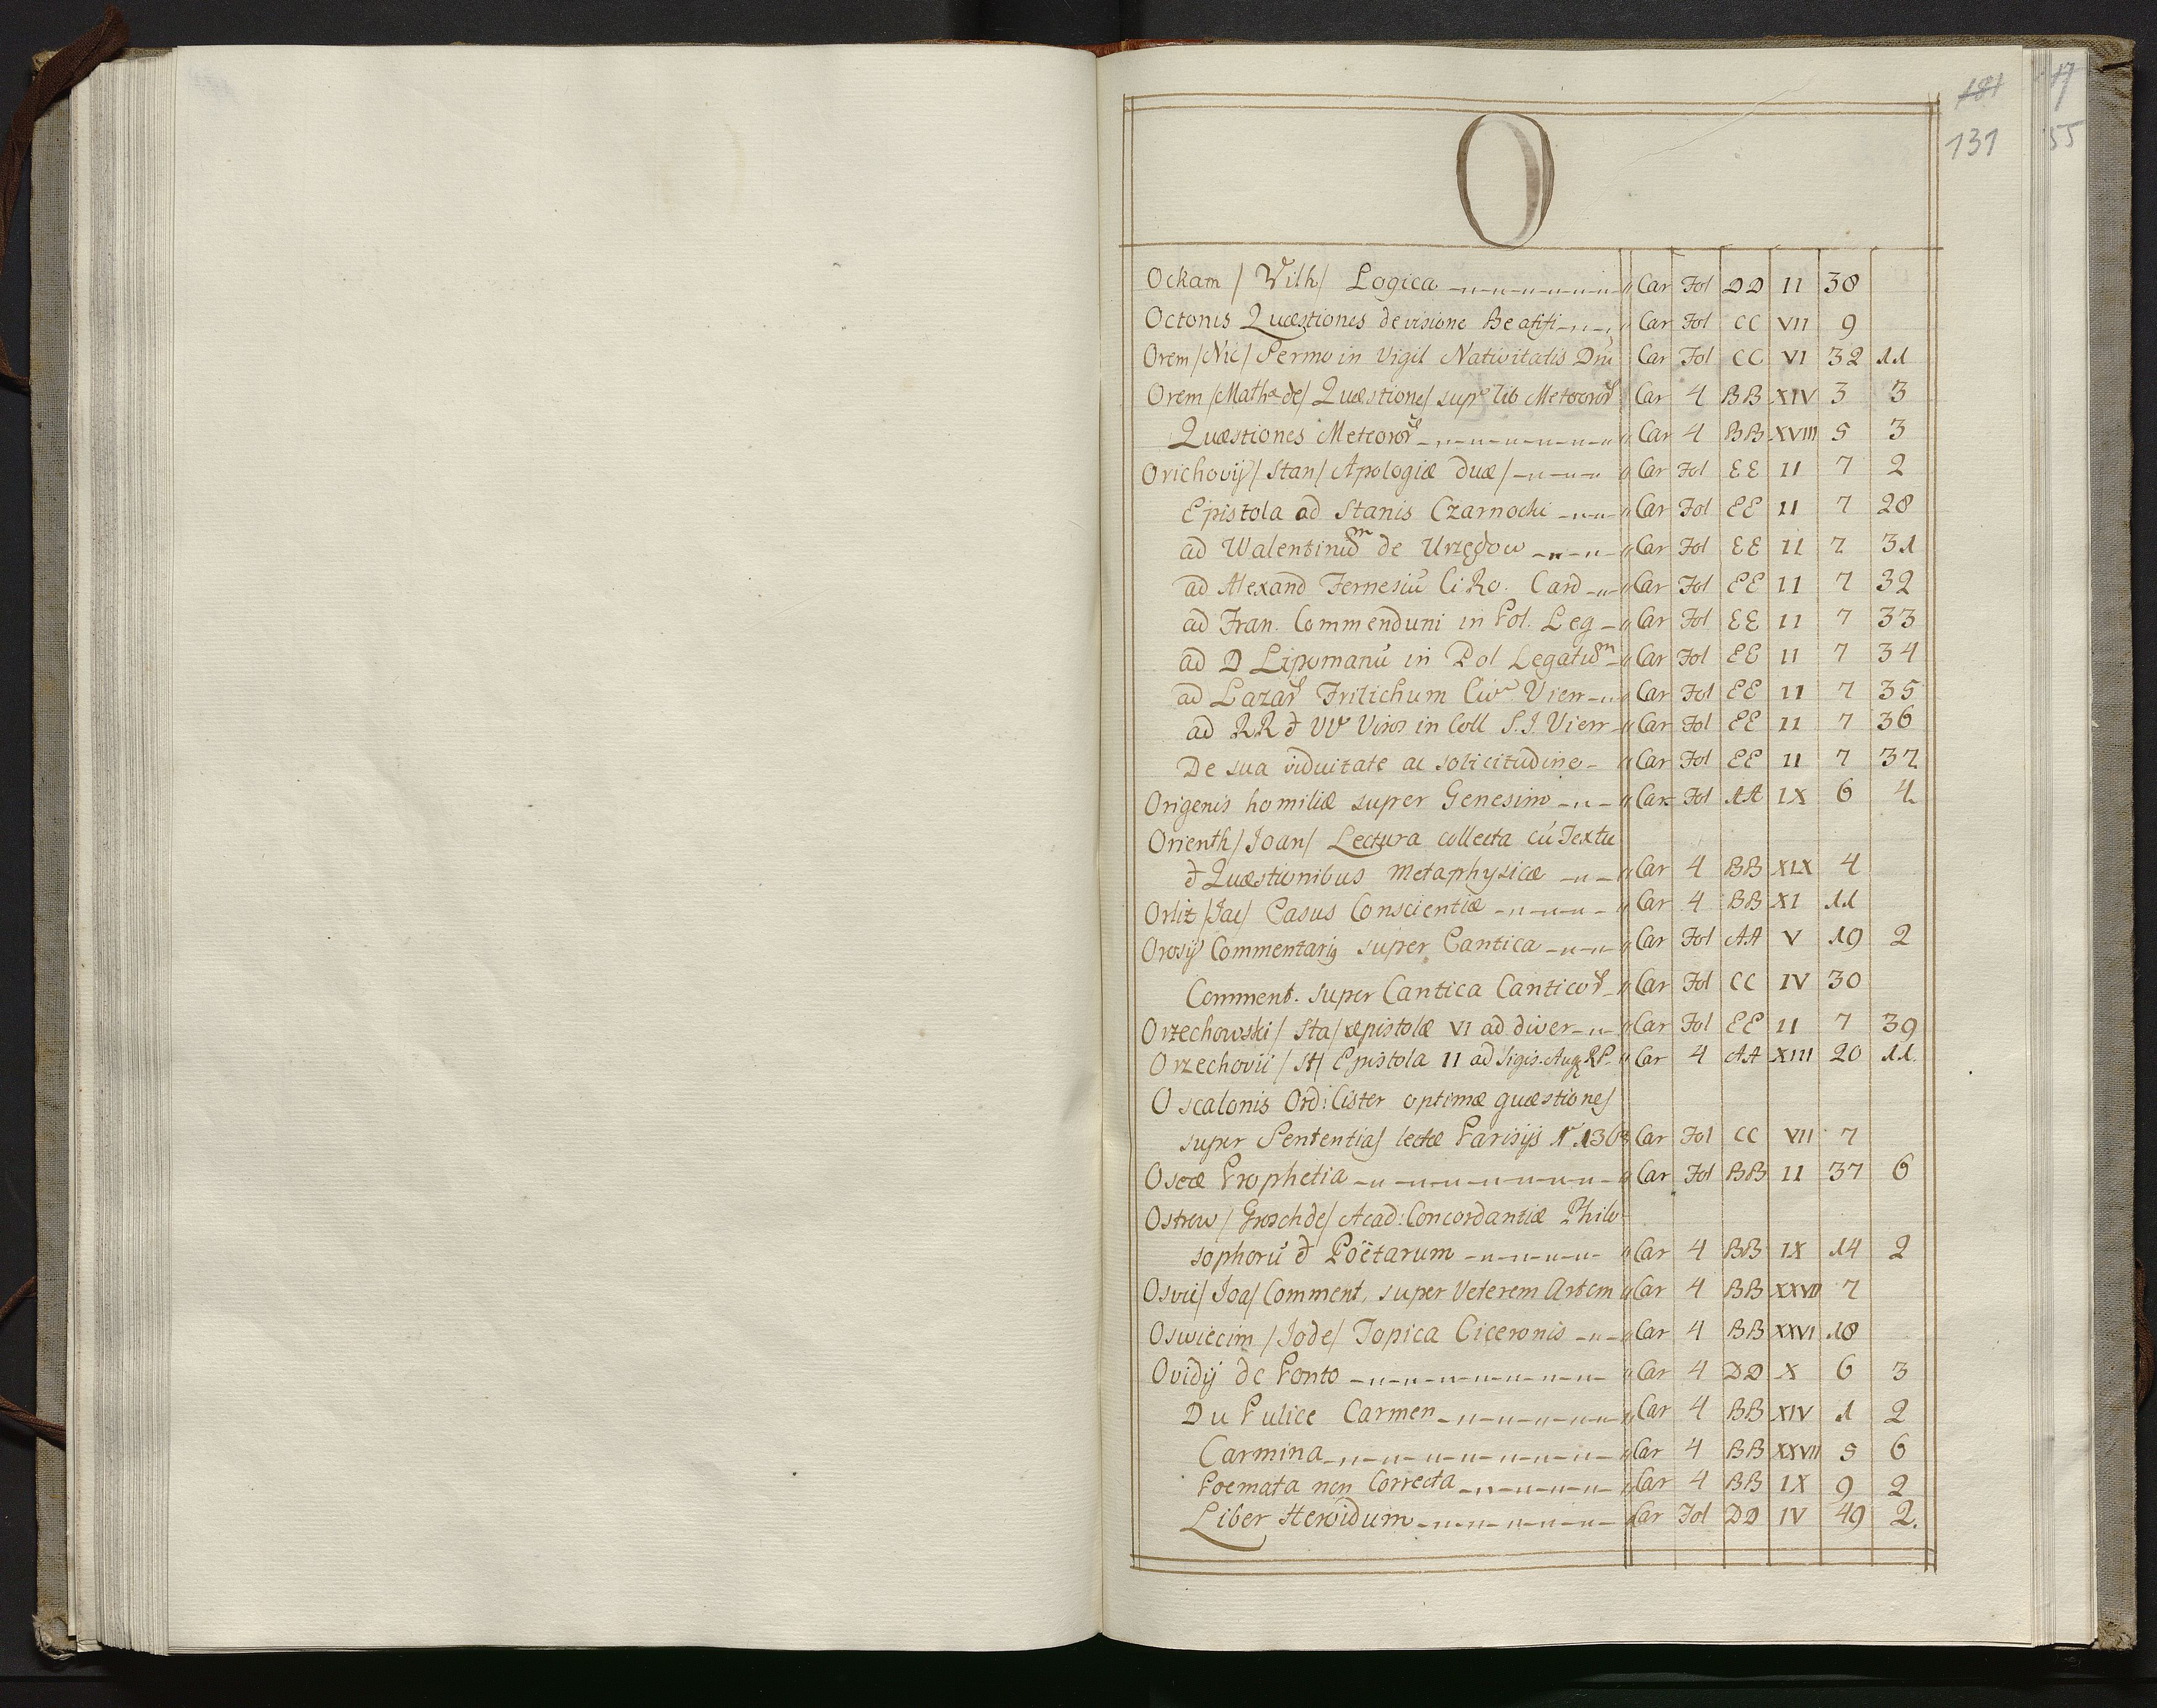 181
131
17
55
O
Ockam / Wilh / Logica Car Fol DD II 38
Octonis Quæstiones de visione Beatifi Car Fol CC VII 9
Orem / Nic / Sermo in Vigil Nativitatis Dni Car Fol CC VI 32 11
Orem / Math de / Quæstiones sup lib Meteoror Car 4 BB XIV 3 3
Quæstiones Meteoror Car 4 BB XVIII 5 3
Orichovij / Stan / Apologiæ duæ / Car Fol EE II 7 2
Epistola ad Stanis Czarnocki Car Fol EE II 7 28
ad Walentinum de Urzędow Car Fol EE II 7 31
ad Alexand Fernesiū Ci Ro. Card Car Fol EE II 7 32
ad Fran. Commenduni in Pol. Leg Car Fol EE II 7 33
ad D Lipomanū in Pol Legatum Car Fol EE II 7 34
ad Lazar Fritichum Civ Vien Car Fol EE II 7 35
ad RR & VV Viros in Coll S.J. Vien Car Fol EE II 7 36
De sua viduitate ac solicitudine Car Fol EE II 7 37
Origenis homiliæ super Genesim Car Fol AA IX 6 4.
Orienth / Joan / Lectura collecta cū Textu
& Quæstionibus Metaphysicæ Car 4 BB XIX 4
Orlit / Jac / Casus Conscientiæ Car 4 BB XI 11
Orosij Commentarius super Cantica Car Fol AA V 19 2
Comment. super Cantica Canticor Car Fol CC IV 30
Orzechowski / Sta / epistolæ VI ad diver Car Fol EE II 7 39
Orzechovii / St / Epistola II ad Sigis. Aug RP. Car 4 AA XIII 20 11.
Oscalonis Ord: Cister optimæ quæstiones
super Sententias lectæ Parisijs Car Fol CC VII 7
Oseæ Prophetia Car Fol BB II 37 6
Ostrow / Groschde / Acad: Concordantiæ Philo
sophorū & Poëtarum Car 4 BB IX 14 2
Osvii / Joa / Comment. super Veterem Artem Car 4 BB XXVII 7
Oswiecim / Jode / Topica Ciceronis Car 4 BB XXVI 18
Ovidij de Ponto Car 4 DD X 6 3
Du Pulice Carmen Car 4 BB XIV 1 2
Carmina Car 4 BB XXVII 5 6
Poemata non Correcta Car 4 BB IX 9 2
Liber Heroidum Car Fol DD IV 49 2.